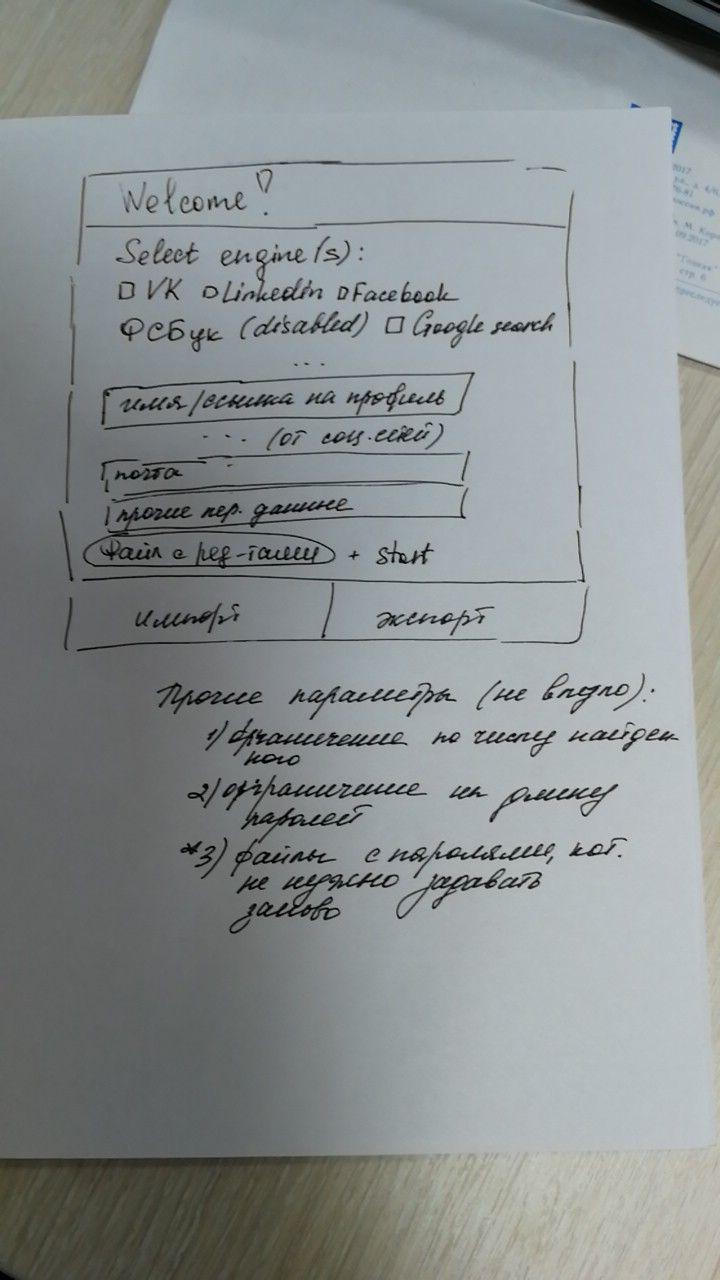 Welcome!
Select engine(s):
VK Linkedin Facebook
ФСБук (disabled) Google search
...
имя/ссылка на профиль
... (от соц. сетей)
почта
прочие пер. данные
Файл с рез-тами + Start
импорт экспорт
Прочие параметры (не влезло):
1) ограничение по числу найден
ного
2) ограничение на длину
паролей
*3) файлы с паролями, кот.
не нужно задавать
заново
2017
09.2017
стр. 6